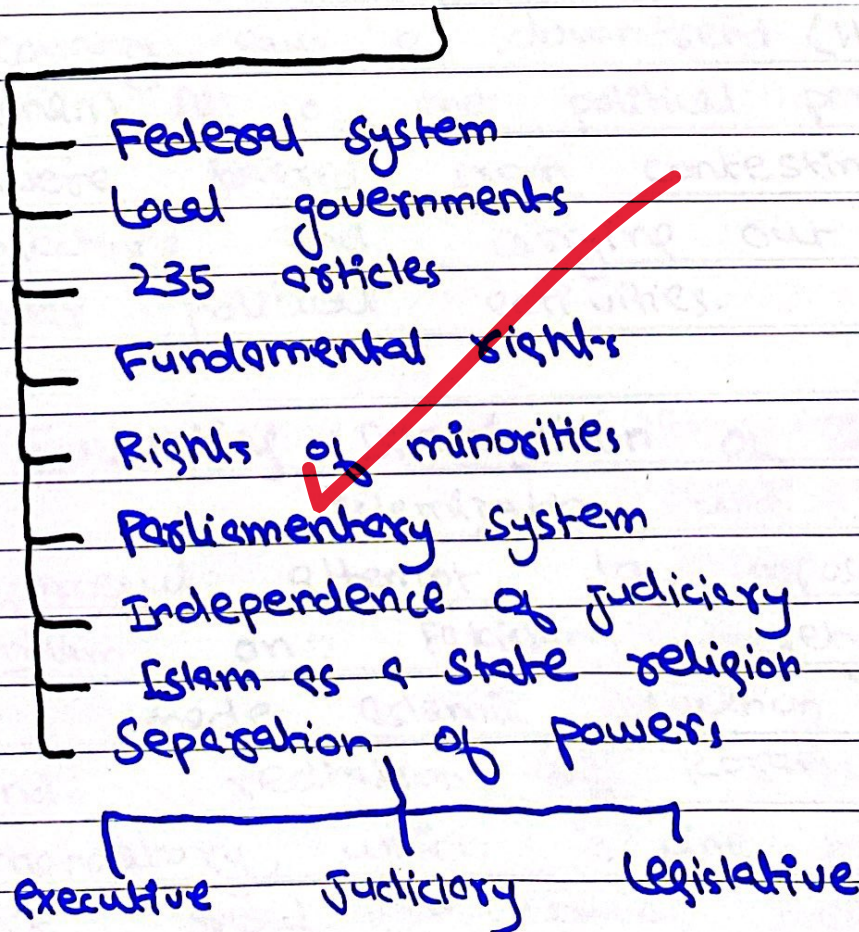 Federal system
Local governments
235 articles
Fundamental rights
Rights of minorities
Parliamentary system
Independence of judiciary
Islam as a state religion
Separation of powers
executive judiciary legislative